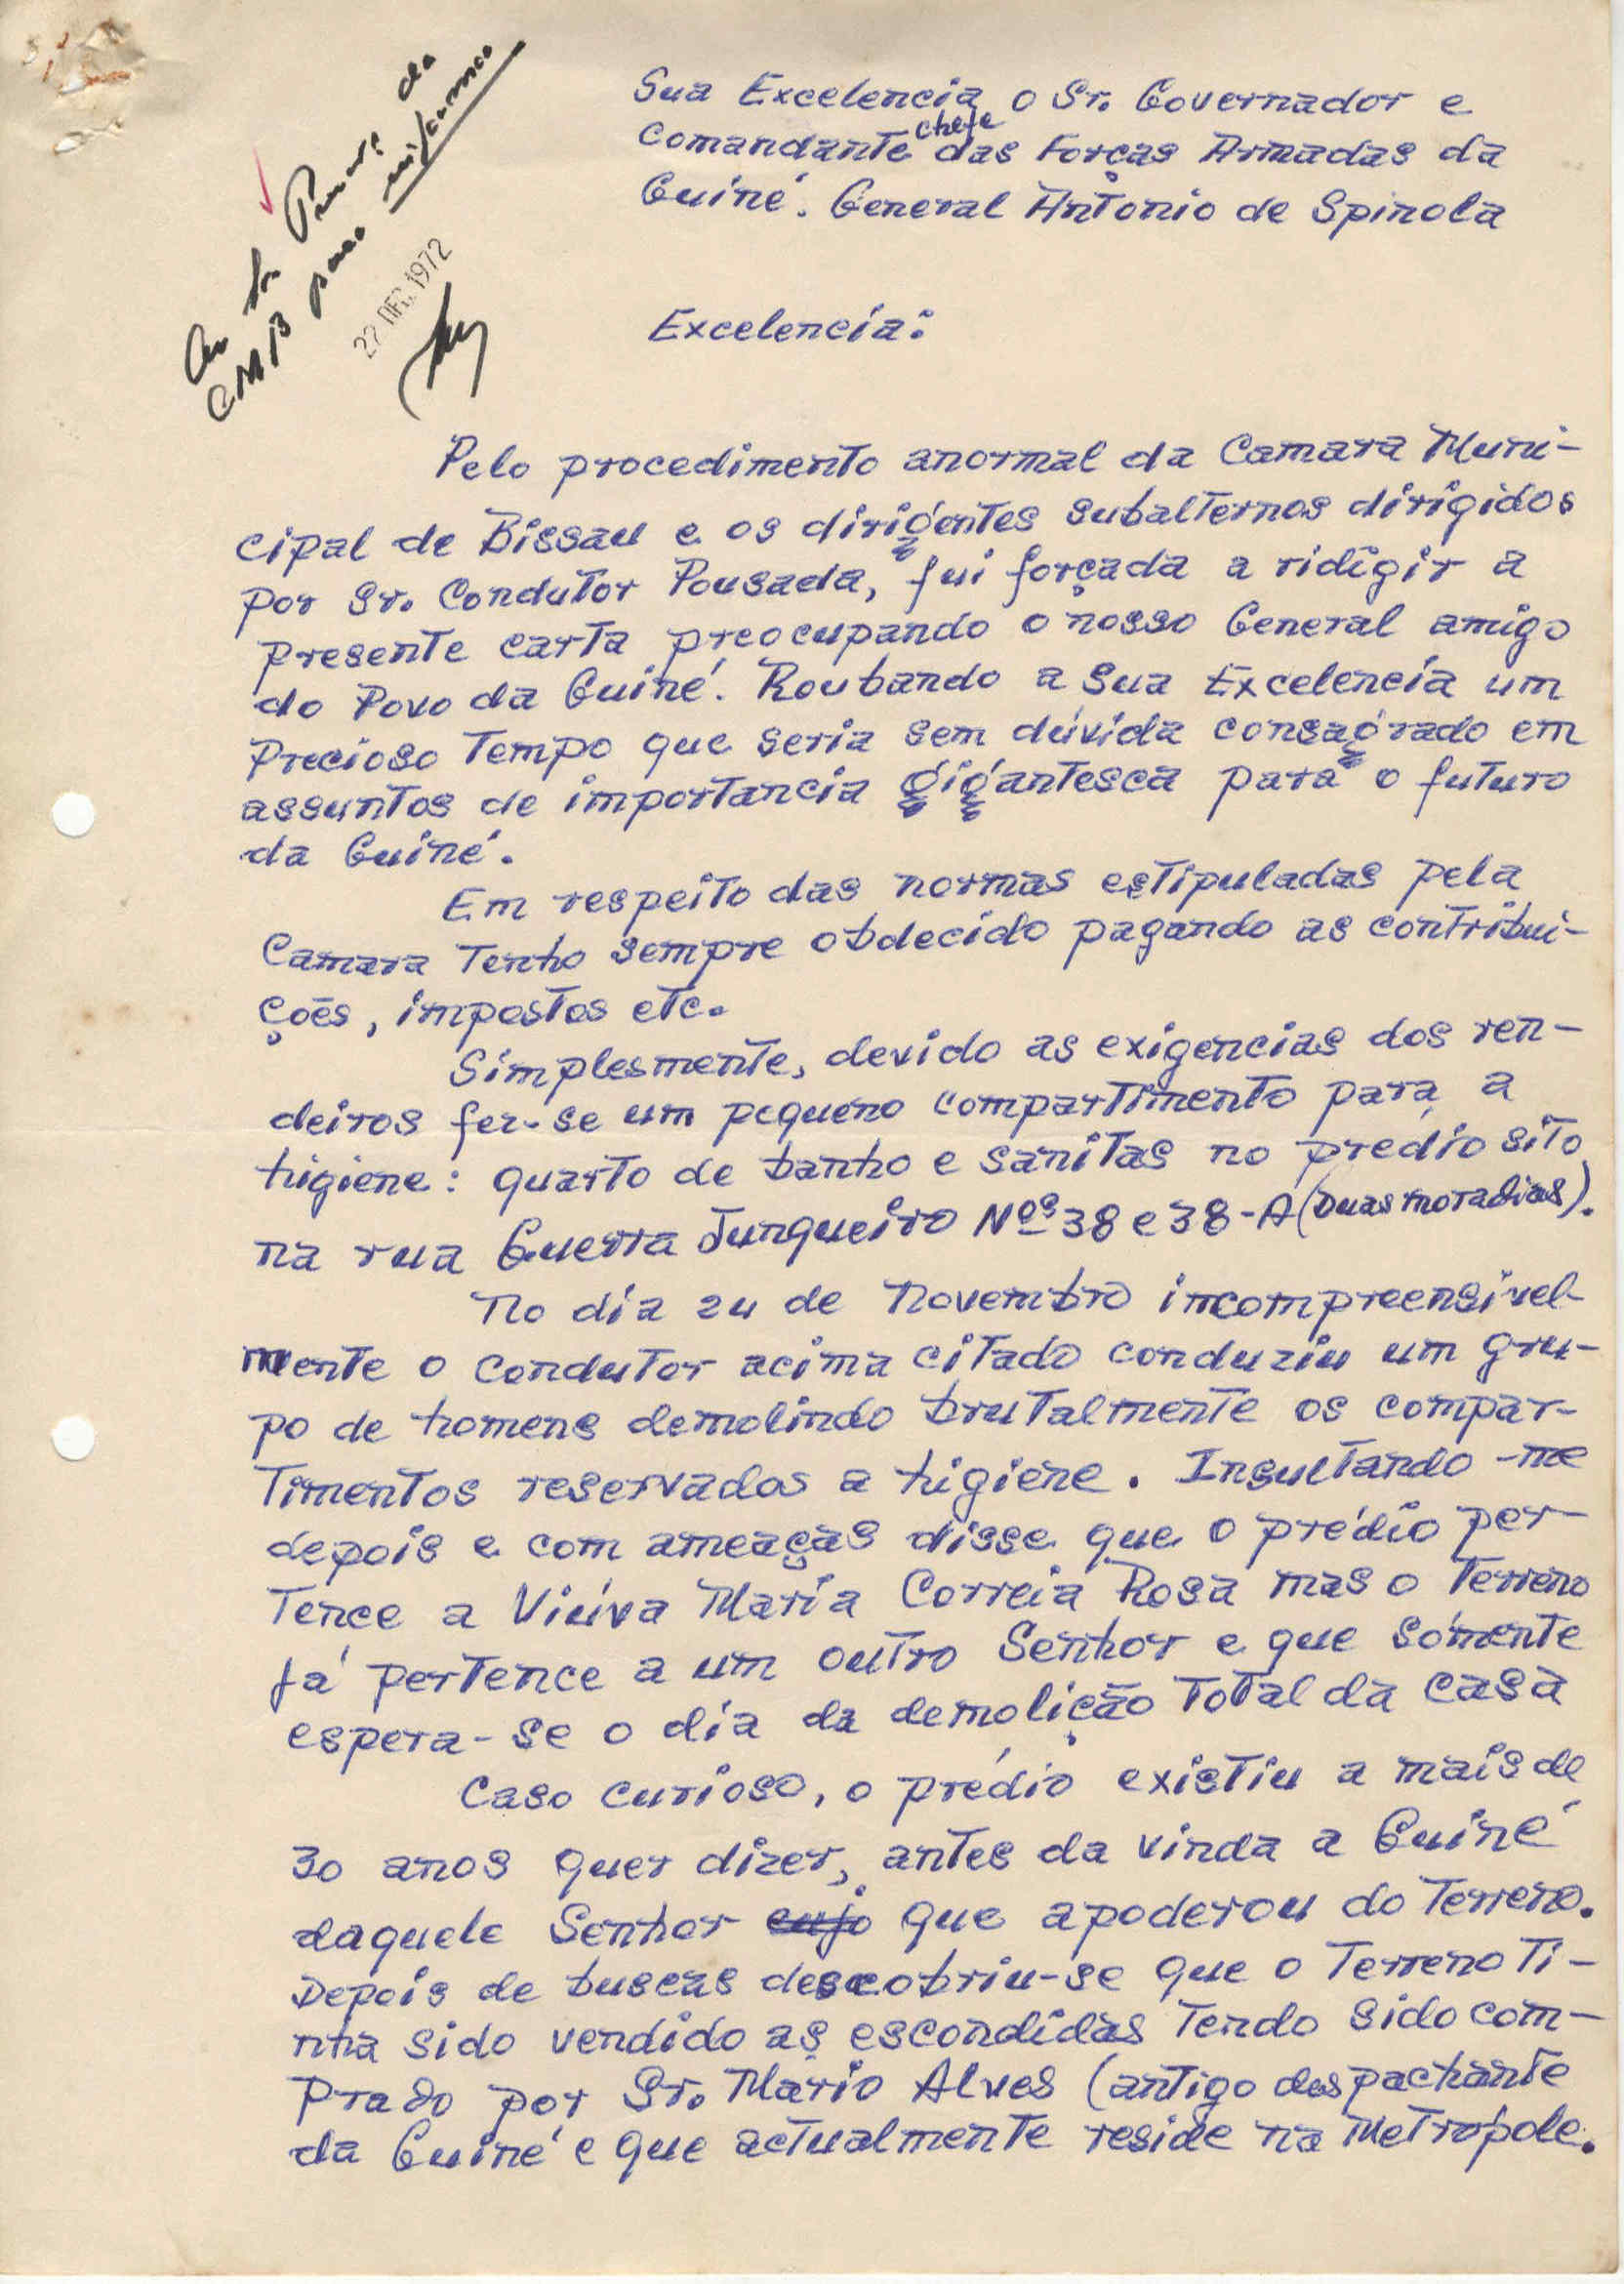 Ao Sr. Pres. da
CMB para
27 DEZ 1972
Sua Excelencia o Sr. Governador e
Comandante chefe das Forças Armadas da
Guiné. General Antonio de Spinola
Excelencia:
Pelo procedimento anormal da Camara Muni-
cipal de Bissau e os dirigentes subalternos dirigidos
por Sr. Condutor Pousada, fui forçada a ridigir a
presente carta preocupando o nosso General amigo
do Povo da Guiné. Roubando a Sua Excelencia um
Precioso Tempo que seria sem dúvida consagrado em
assuntos de importancia gigantesca para o futuro
da Guiné.
Em respeito das normas estipuladas pela
Camara Tenho sempre obdecido pagando as contribui-
ções, impostos etc.
Simplesmente, devido as exigencias dos ren-
deiros fez-se um pequeno compartimento para a
higiene: quarto de banho e sanitas no prédio sito
na rua Guerra Junqueiro Nºs 38 e 38-A (Duas moradias).
No dia 24 de Novembro incompreensivel-
mente o condutor acima citado conduziu um gru-
po de homens demolindo brutalmente os compar-
timentos reservados a higiene. Insultando-me
depois e com ameaças disse que o prédio per-
tence a Viúva Maria Correia Rosa mas o Terreno
já pertence a um outro Senhor e que sómente
espera-se o dia da demolição Total da casa
Caso curioso, o prédio existiu a mais de
30 anos quer dizer, antes da vinda a Guiné
daquele Senhor cujo que apoderou do Terreno.
Depois de buscas descobriu-se que o Terreno Ti-
nha sido vendido as escondidas Tendo sido com-
prado por Sr. Mario Alves (antigo despachante
da Guiné e que actualmente reside na Metrópole.